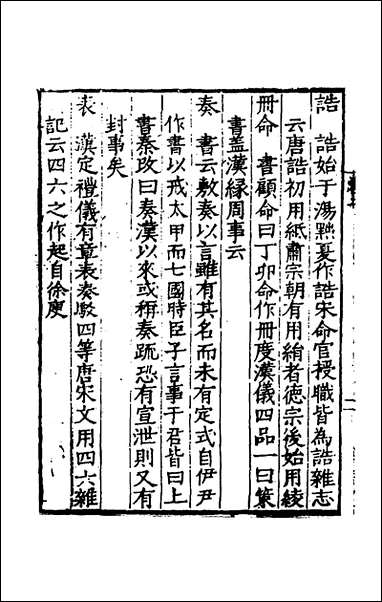 誥　誥始于湯黜夏作誥宋命官授職皆為誥雜志
云唐誥初用紙肅宗朝有用絹者德宗後始用綾
冊命　書顧命曰丁卯命作冊度漢儀四品一曰策
書盖漢緣周事云
奏　書云敷奏以言雖有其名而未有定式自伊尹
作書以戒太甲而七國時臣子言事于君皆曰上
書秦改曰奏漢以來或稱奏疏恐有宣泄則又有
封事矣
表　漢定禮儀有章表奏駮四等唐宋文用四六雜
記云四六之作起自徐庾